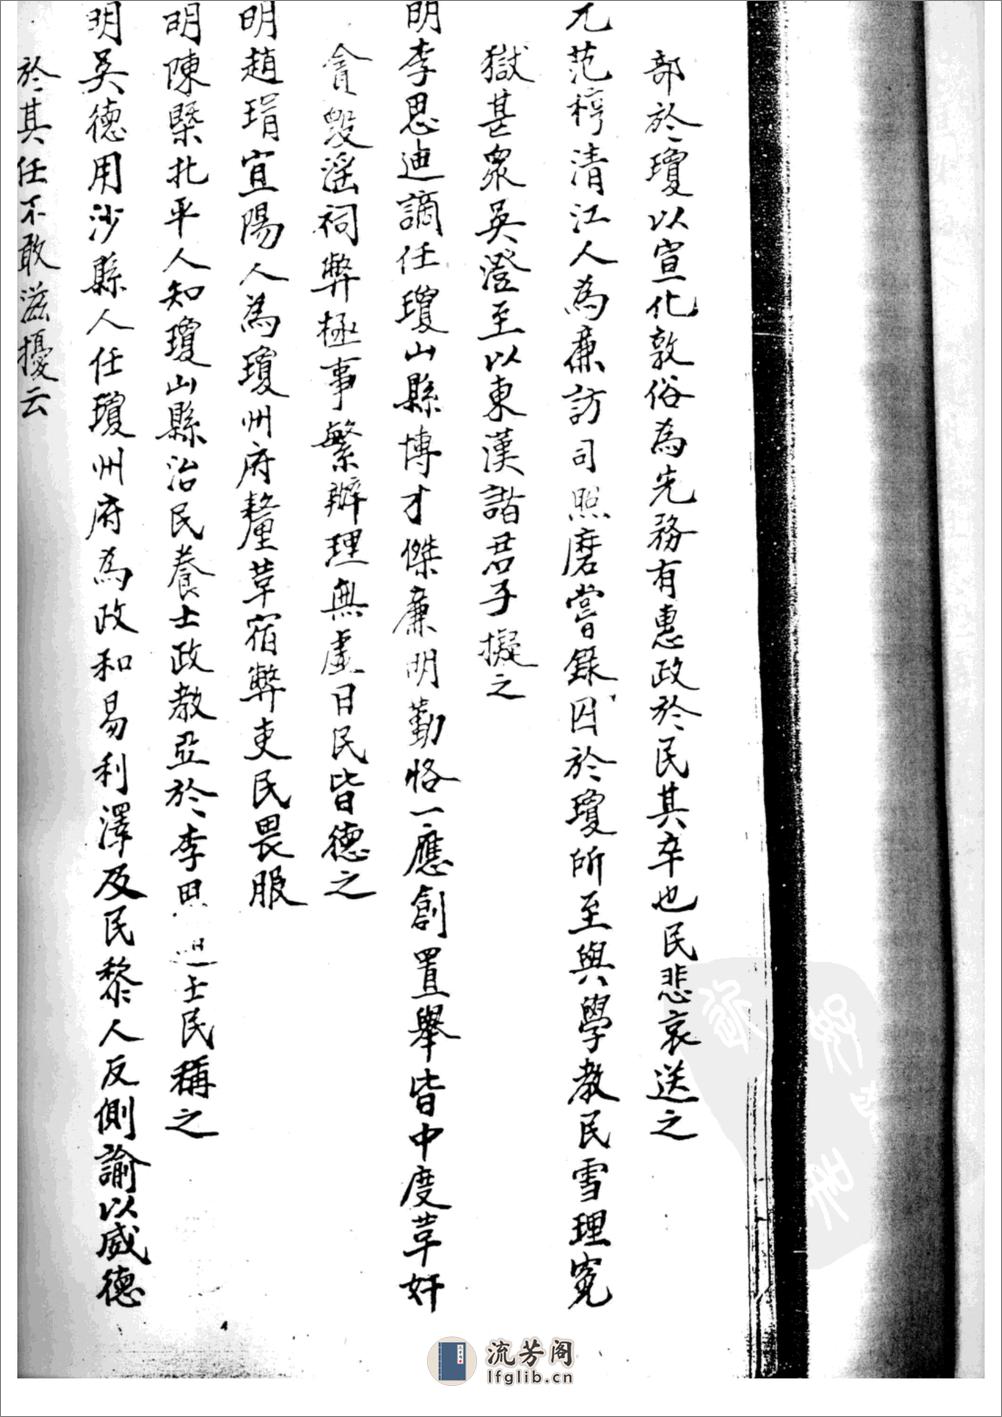 部於瓊以宣化敦俗為先務有惠政於民其卒也民悲哀送之
范梈清江人為廉訪司照磨嘗錄囚於瓊所至興學教民雪理冤
獄甚眾吳澄至以東漢諸君子擬之
明李思迪謫任瓊山縣博才傑廉明勤恪一應創置舉皆中度革奸
貪毀滛祠弊極事繁辦理無虛日民皆德之
明趙瑁宜陽人為瓊州府釐革宿弊吏民畏服
明陳槩北平人知瓊山縣治民養士政教亞於李思士民稱之
明吳德用沙縣人任瓊州府為政和易利澤及民黎人反側諭以威德
於其任不敢滋擾云
流芳阁
lfglib.cn